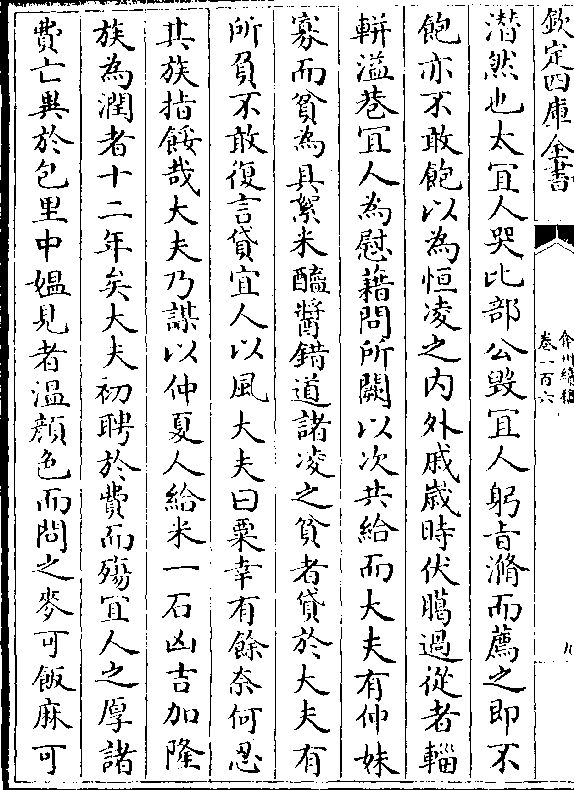 欽定四庫全書
弇州續稿
卷一百六
潸然也太宜人哭比部公毁宜人躬㫖滫而薦之即不
飽亦不敢飽以為恒凌之内外戚歳時伏臈過從者輜
軿溢巷宜人為慰藉問所闕以次共給而大夫有仲妹
寡而貧為具絮米醯醬錯道諸凌之貧者貸於大夫有
所負不敢復言貸宜人以風大夫曰粟幸有餘奈何忍
其族指餒哉大夫乃謀以仲夏人給米一石凶吉加隆
族為潤者十二年矣大夫初聘於費而殤宜人之厚諸
費亡異於包里中媪見者温顔色而問之麥可飯麻可